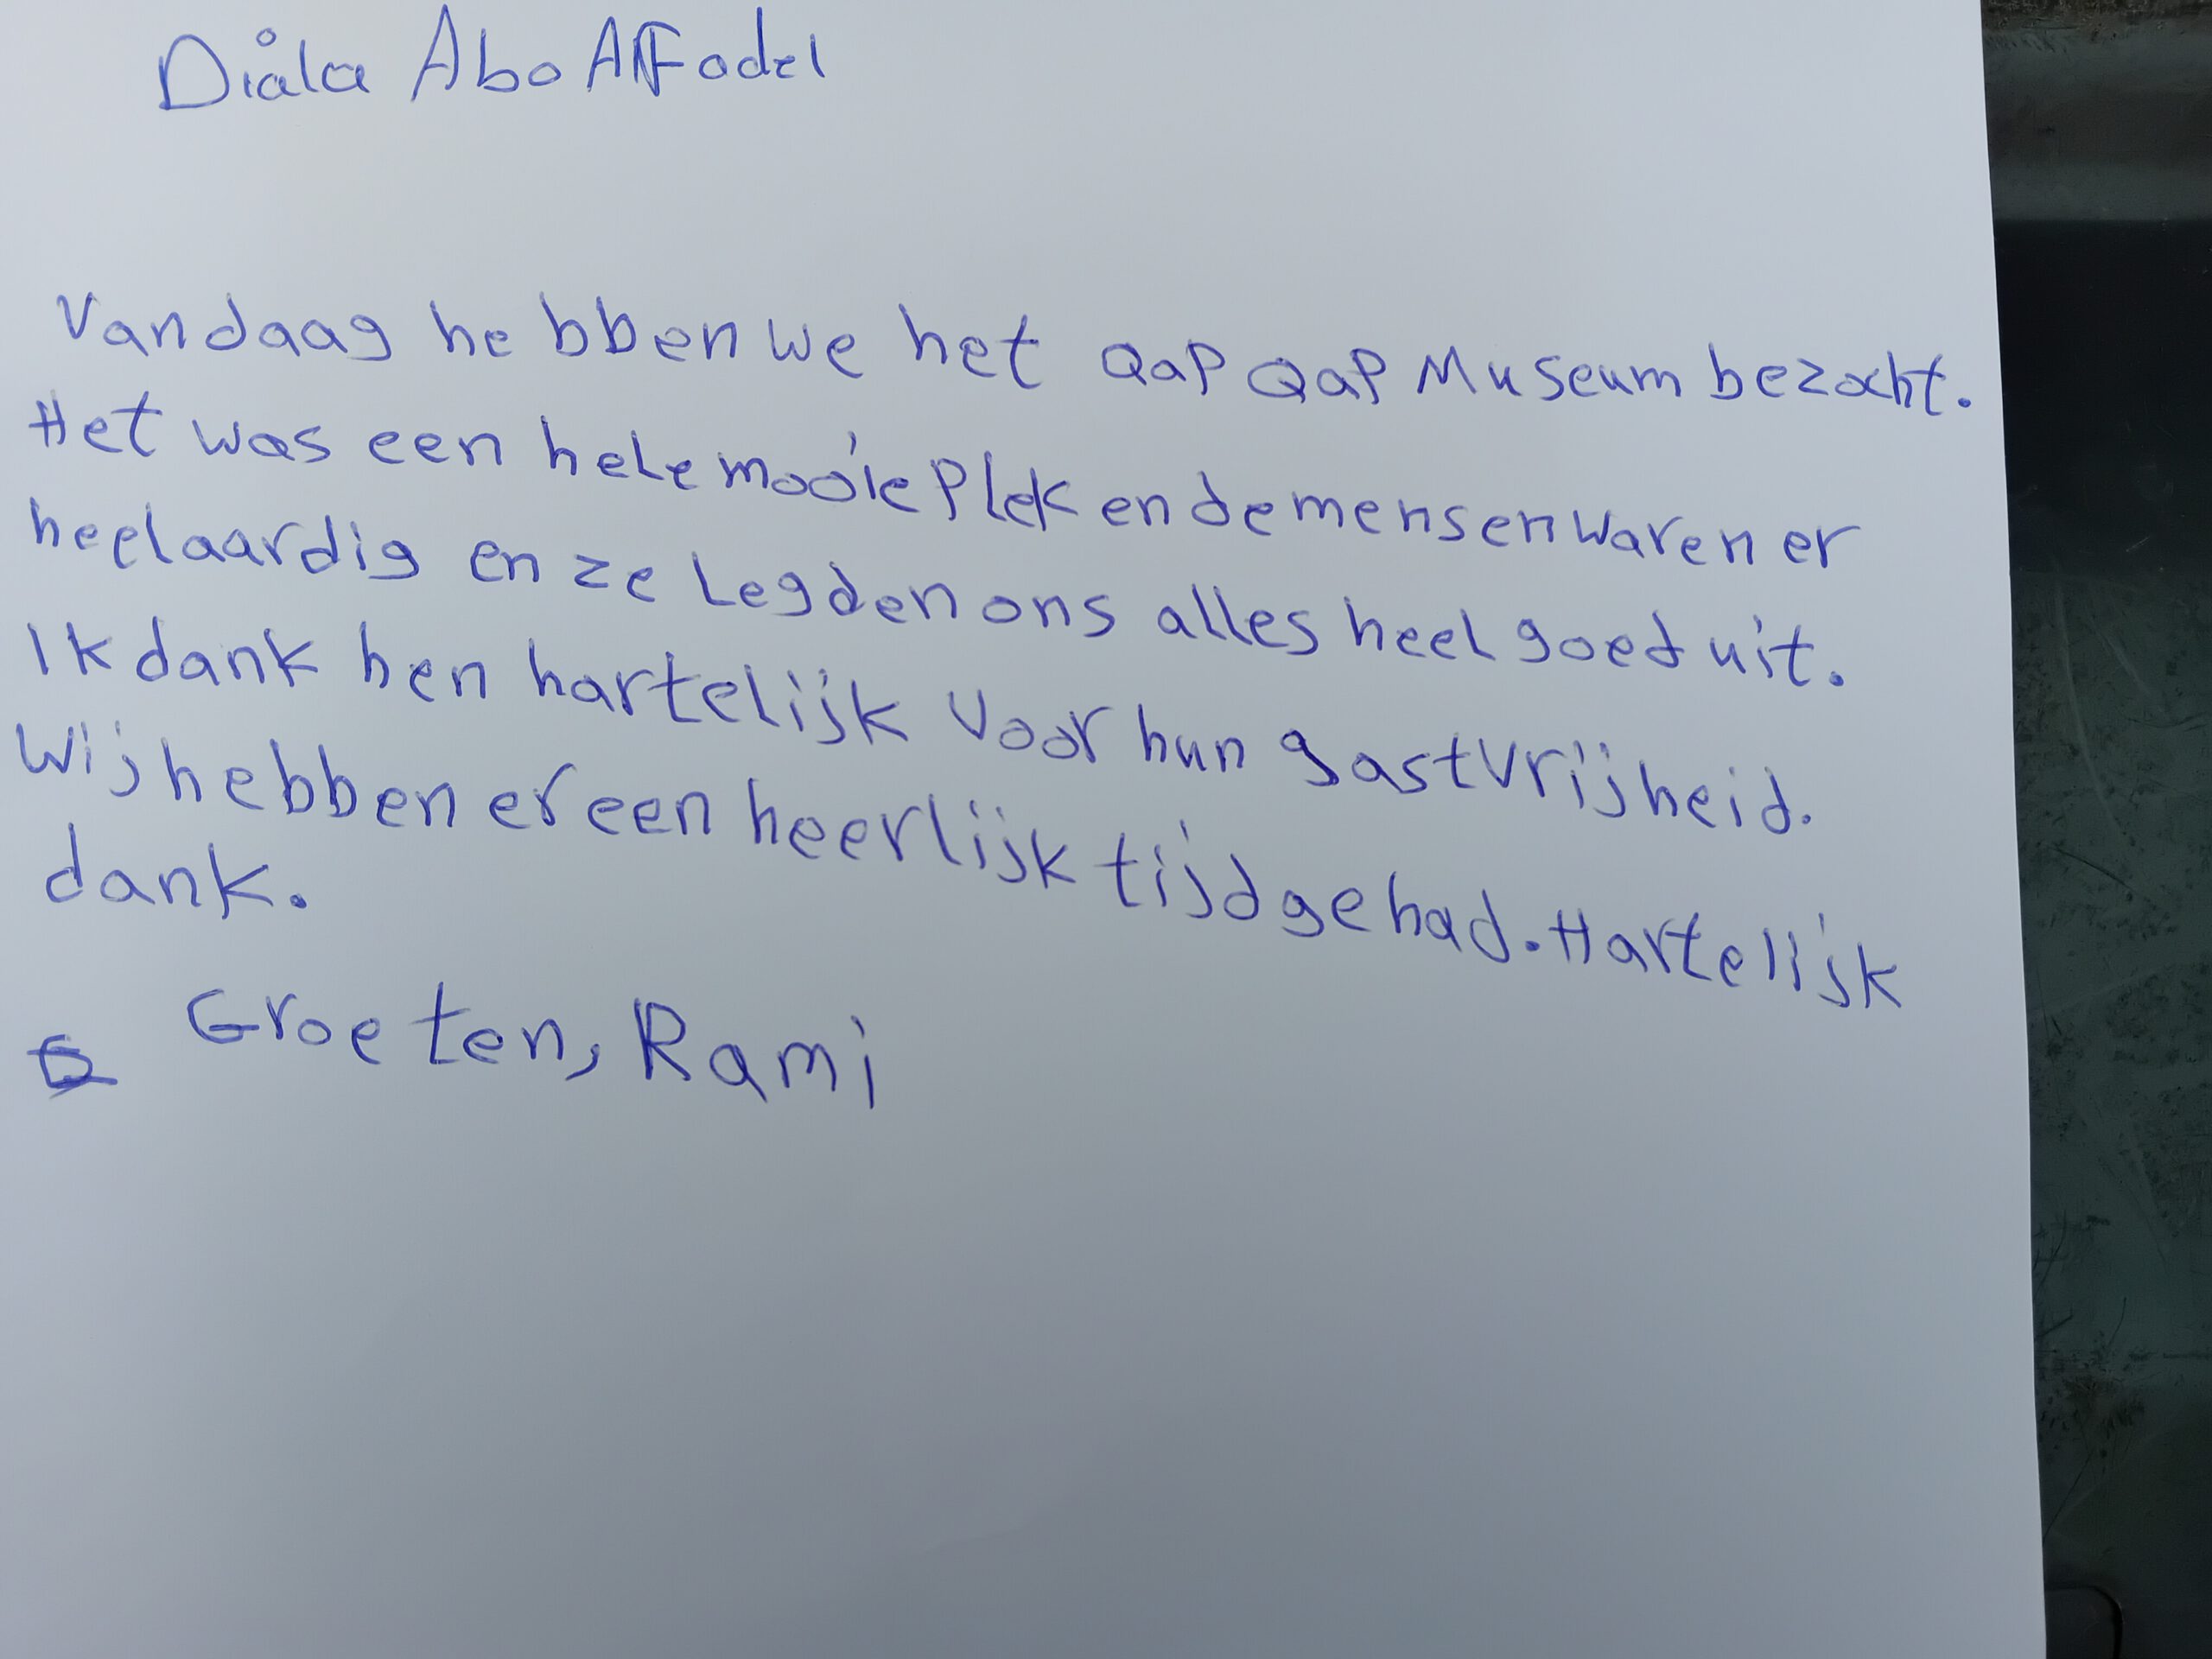 Diala Abo Alfadel
Vandaag hebben we het QaP QaP Museum bezocht.
Het was een hele mooie Plek en de mensen waren er
heel aardig en ze Legden ons alles heel goed uit.
Ik dank hen hartelijk Voor hun gastvrijheid.
Wij hebben er een heerlijk tijd gehad. Hartelijk
dank.
Groeten, Rami